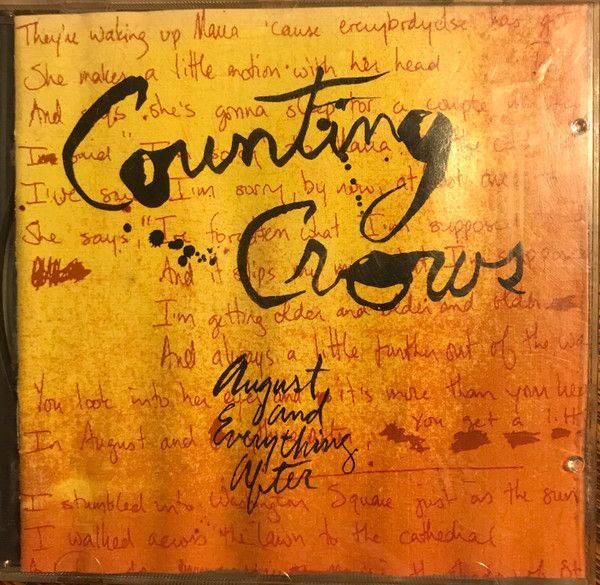 They're waking up Maria 'cause everybody else has got
She makes a little motion with her head
And says she's gonna sleep for a couple
Counting
said "I'm Maria
I've I'm sorry, by now, at
Crows
She says, "I've forgotten what I'm suppose
And it slips my
I'm getting older and older and older
And always a little further out of the wa
August
You look into her eyes and it's more than your he
and
In August and You get a litt
Everything
After
I stumbled into Washington Square just as the sun
I walked across the lawn to the cathedral